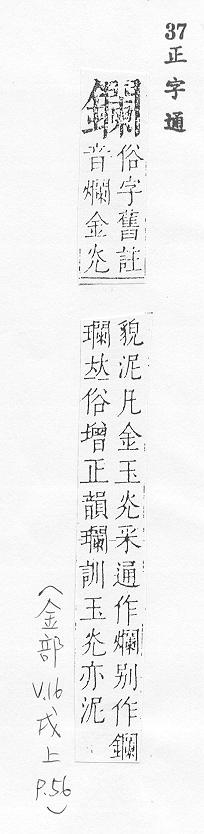 37 正字通
鑭
俗字舊註
音爛金灮
貌泥凡金玉灮采通作爛别作鑭
瓓𠀤俗增正韻瓓訓玉灮亦泥
(金部 V.16 戌上 P.56)